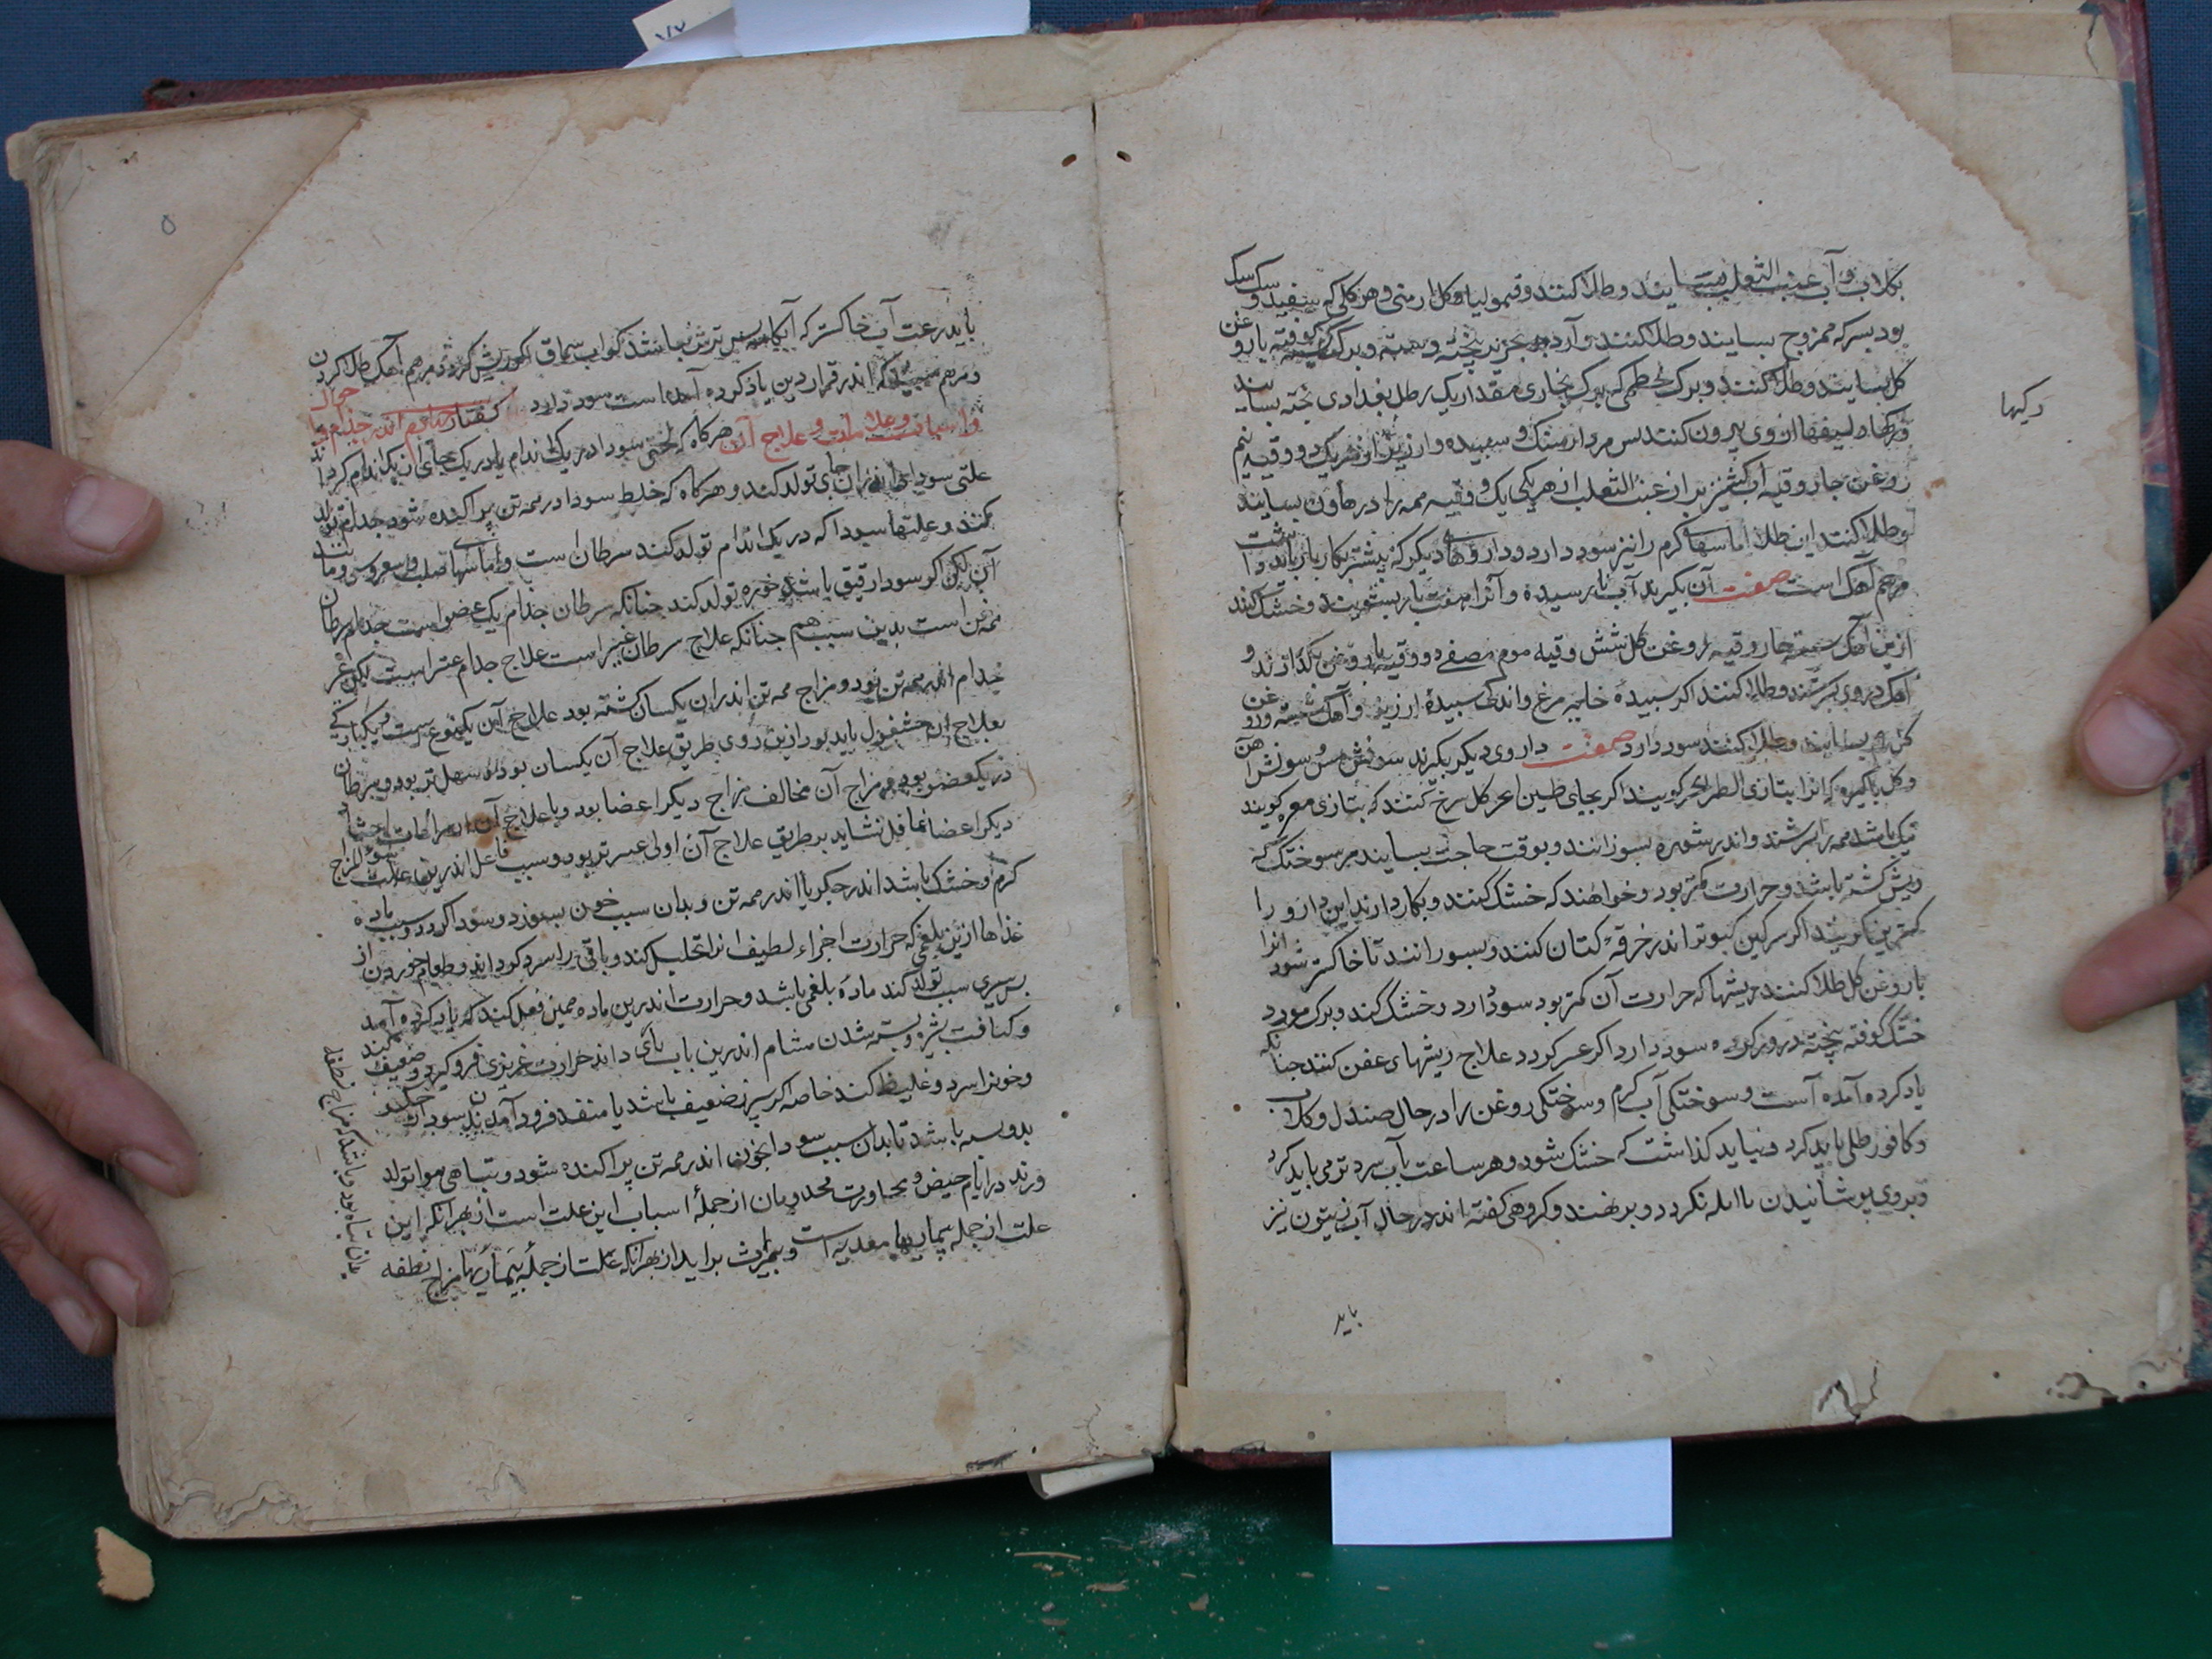 بکلاب و آب عنب الثعلب بسایند و طلا کنند و قیمولیا و کل ارمنی و هر کلی که سفید و سبک
بود بسرکه ممزوج بسایند و طلا کنند و آرد جو نخته و برک کوفته با روغن
کل بسایند و طلا کنند و برک خطمی که برک بخاری مقدار یک رطل بغدادی نخته بسایند
رکیها
ورکها و لیفها از وی بیرون کنند بس مردارسنک و سپیده و ارزیز از هر یک دو وقیه نیم
روغن جار وقیه آب کشنیز تر از عنب الثعلب از هر یکی یک وقیه همه را در هاون بسایند
و طلا کنند این طلا اماسهای کرم را نیز سود دارد و داروهای دیکر که بیشتر بکار باز باید داشت
مرهم آهک است صفت آن بکیرند آب نارسیده و آنرا هفت بار بشویند و خشک کنند
ازین آهک شسته جار وقیه روغن کل شش وقیه موم مصفی دو وقیه با روغن بکدازند و
آهک در وی بسرشند و طلا کنند اکر سبیدهٔ خایه مرغ و اندکی سبیدهٔ ارزیز و آهک شسته و روغن
کل بهم بسایند و طلا کنند سود دارد صفت داروی دیکر بکیرند سونش مس و سونش آهن
و کل باکیزه که آنرا بتازی الطین الحر کویند اکر بجای طین احر کل سرخ کنند که بتازی مغره کویند
نیک باشد همه را بسرشند و اندر شوره بسوزانند و بوقت حاجت بسایند هر سوختکی که
ریش کشته باشد و حرارت کمتر بود و خواهند که خشک کنند و بکار دارند این دارو را
کمترین کویند اکر سرکین کبوتر اندر خرقه کتان کنند و بسورانند تا خاکستر شود آنرا
با روغن کل طلا کنند ریشها که حرارت آن کمتر بود سود دارد و خشک کند و برک مورد
خشک کوفته بیخته در وی کرده سود دارد اکر عسر کردد علاج ریشهای عفن کنند جنانکه
یاد کرده آمده آست و سوختکی آب کرم و سوختکی روغن را در حال صندل و کلاب
و کافور طلی باید کرد و نباید کذاشت که خشک شود و هر ساعت بآب سرد تر می باید کرد
و بروی پوشانیدن تا ابله نکردد و برنهند و کروهی کفته اند در حال آب زیتون نیز
باید
باید رعت آب خاکستر که آبکامه ترش نباشد کو آب سماق کو ریش کردد مرهم آهک طلا کردن
و مرهم سپید که اندر قرابادین یاد کرده آمده است سود دارد کفتار اندر جذام و
و اسباب و علامات و علاج آن هرکاه که لختی سودا در یک اندام یا در یک جای از یک اندام کرد آید
علتی سودای اندران جای تولد کند و هرکاه که خلط سودا در همه تن پراکنده شود جذام تولد
کند و علتها سودا که در یک اندام تولد کند سرطان است و اماسهای صلب و سقیروس و مانند
آن لکن اکر سودا رقیق باشد خوره تولد کند جنانکه سرطان جذام یک عضو است جذام سرطان
همه تن است بدین سبب هم جنانکه علاج سرطان عسر است علاج جذام عسر است لکن
جذام اندر همه تن بود و مزاج همه تن اندران یکسان کشته بود علاج آن یک نوع است و یکبارکی
بعلاج آن مشغول باید بود ازین روی طریق علاج آن یکسان بود و سهل تر بود و سرطان
در یک عضو بود و مزاج آن مخالف مزاج دیکر اعضا بود و با علاج آن از مراعات
دیکر اعضا غافل نشاید بود طریق علاج آن اولی عسر تر بود و سبب فاعل اندرین علت سوء المزاج
کرم و خشک باشد اندر جکر یا اندر همه تن و بدان سبب خون بسوزد و سودا کردد و سبب ماده
غذاها ازین بلغمی که حرارت اجزاء لطیف آنرا تحلیل کند و باقی را سرد کرداند و طعام خوردن از
بس سیری سبب تولد کند مادهٔ بلغمی باشد و حرارت اندرین ماده همین فعل کند که یاد کرده آمد
و کثافت بشره و بسته شدن مسام اندرین باب یاری داند حرارت غریزی فرو کیرد و ضعیف کند
و خونرا سرد و غلیظ کند خاصه اکر سپرز ضعیف باشد یا منفذ فرود آمدن سودا از جکر
بدو بسته باشد تا بدان سبب سودا بخون اندر همه تن پراکنده شود و تباهی هوا و تولد
فرزند در ایام حیض و مجاورت مجذومان از جملهٔ اسباب این علت است از بهر آنکه این
علت از جمله بیماریها معدیه است و بمیراث براید از بهر آنکه علت از جملهٔ بیماریها مزاج نطفه
بدان تباه بود و باشد که مزاج نطفه